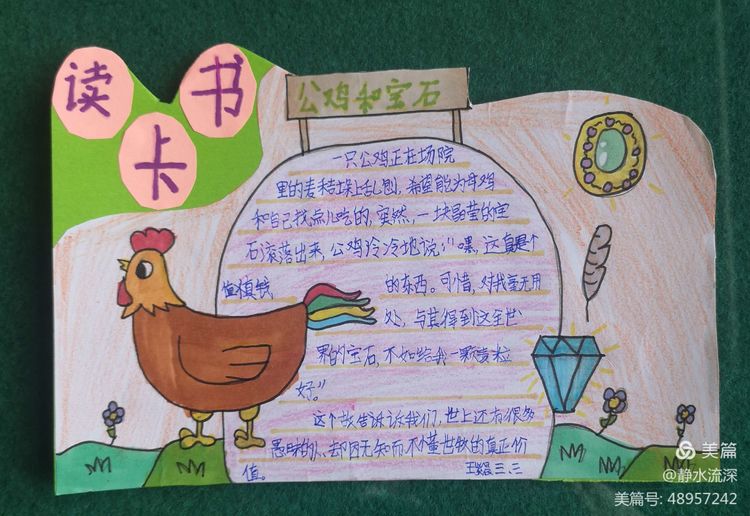 读书卡
公鸡和宝石
一只公鸡正在场院
里的麦秸垛上刨, 希望能为母鸡
和自己找点儿吃的, 突然, 一块晶莹的宝
石滚落出来, 公鸡冷冷地说:“嘿, 这真是个
值钱的东西。可惜, 对我毫无用
处, 与其得到这全世
界的宝石, 不如给我一颗麦粒
好。”
这个故告诉诉我们, 世上还有很多
愚昧的人, 却因无知而不懂世物的真正价
值。
三、三
美篇
@静水流深
美篇号: 48957242